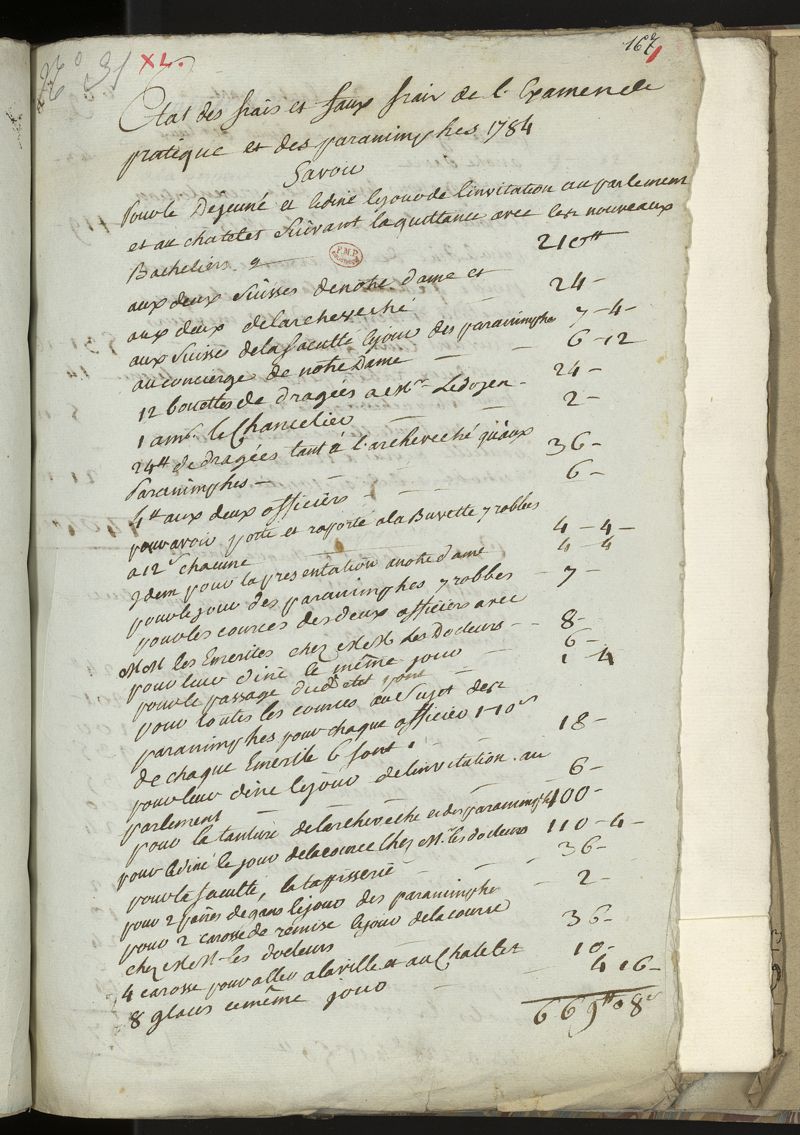 N.o 31 XL. 167
Etat des frais et faux frair de l. Examen de
pratique et des paranimphes 1784
Savoir
Pour le Dejeuné et le diné le jour de l'invitation au parlement
et au chatelet suivant la quittance avec les nouveaux
Bacheliers. 210tt
aux deux suisses de notre dame et
aux deux de larchevesché 24-
aux suisses de la faculté le jour des paranimphe 7-4-
au concierge de notre Dame 6-12
12 bouettes de dragées a Mr. Ledoyen - 24-
1 a mr. le Chancelier 2-
24tt de dragées tant à l'archeveché qu'aux
Paranimphes - 36-
4tt aux deux officiers 6-
pour avoir porté et raporté a la Buvette 7 robbes
a 12s chacune 4-4-
Idem pour la presentation a notre dame 4-4
pour le jour des paranimphes 7 robbes - 7-
pour les cources des deux officiers avec
MM les Emerites chez MM Les Docteurs - - 8-
pour leur diné le même jour 6-
pour le passage du dt pont 1-4
pour toutes les cources au sujet des
paranimphes pour chaque officier 1-10s
de chaque Emerite 6 font 18-
pour leur diné le jour de linvitation au
parlement 6-
pour la tanture de larcheveché et des paranimphe 100-
pour le diné le jour de la cource chez Mrs les docteurs 110-4-
pour la faculté, la tappisserie 36-
pour 2 paires de gans le jour des paranimphe - 2-
pour 2 carosse de remise le jour de la course
chez MM les docteurs 36-
4 carosse pour aller a la ville et au Chatelet 10-
8 glaces le même jour 4 16-
669tt 08s